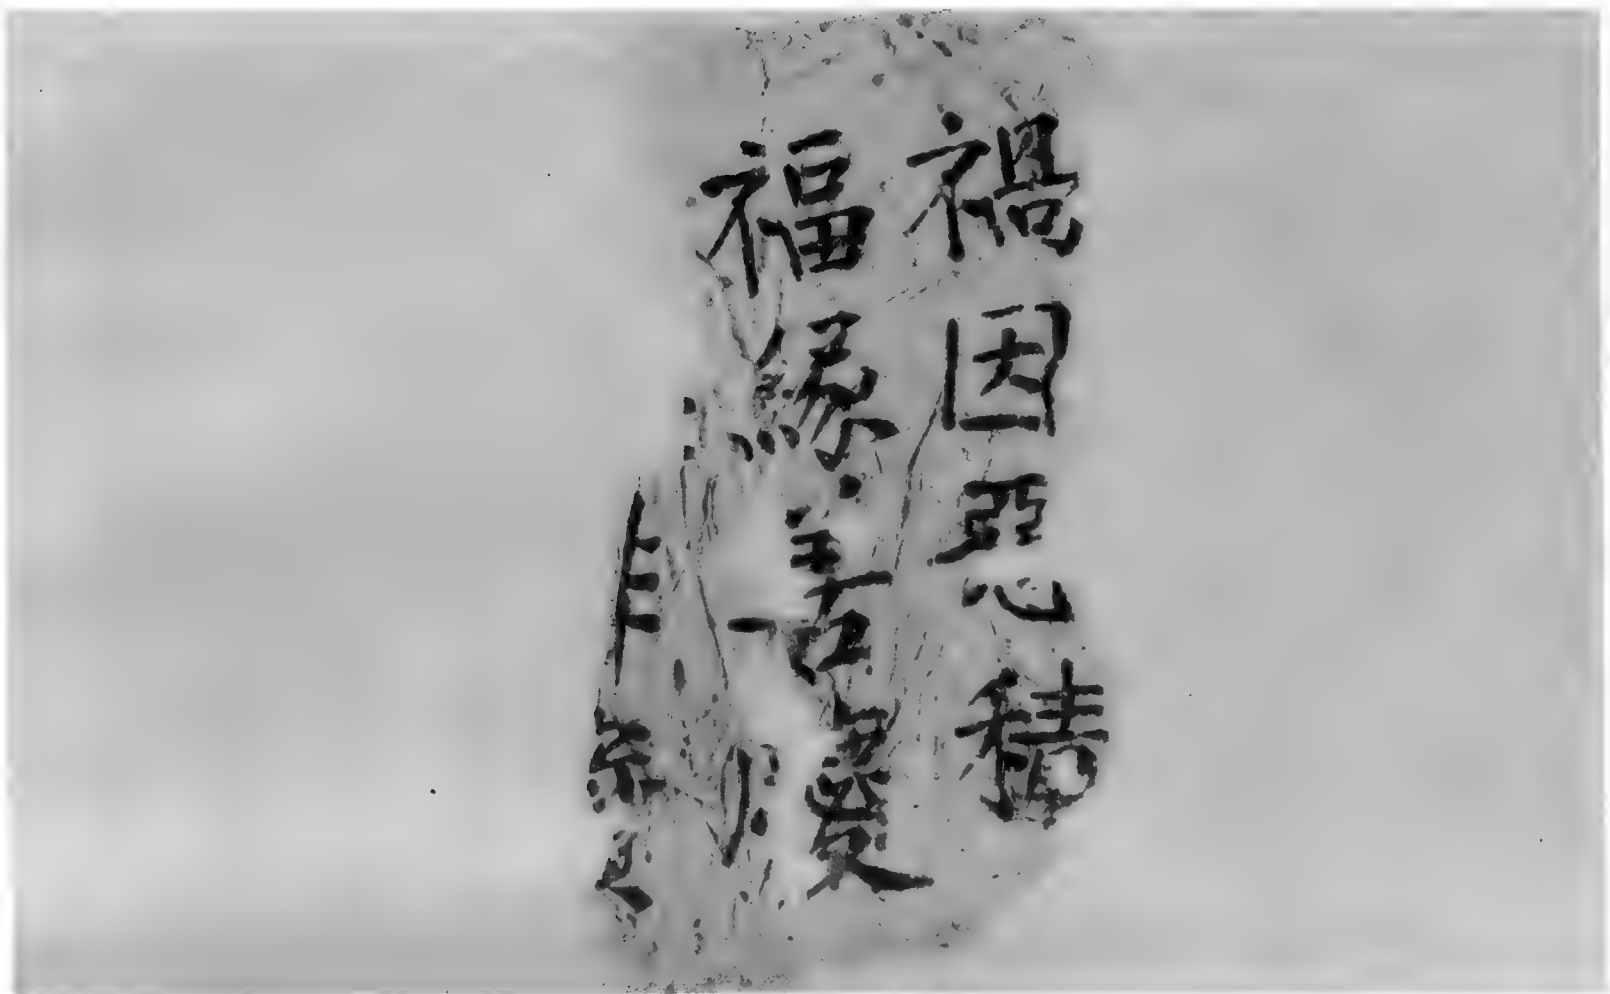 禍因惡積
福緣善慶